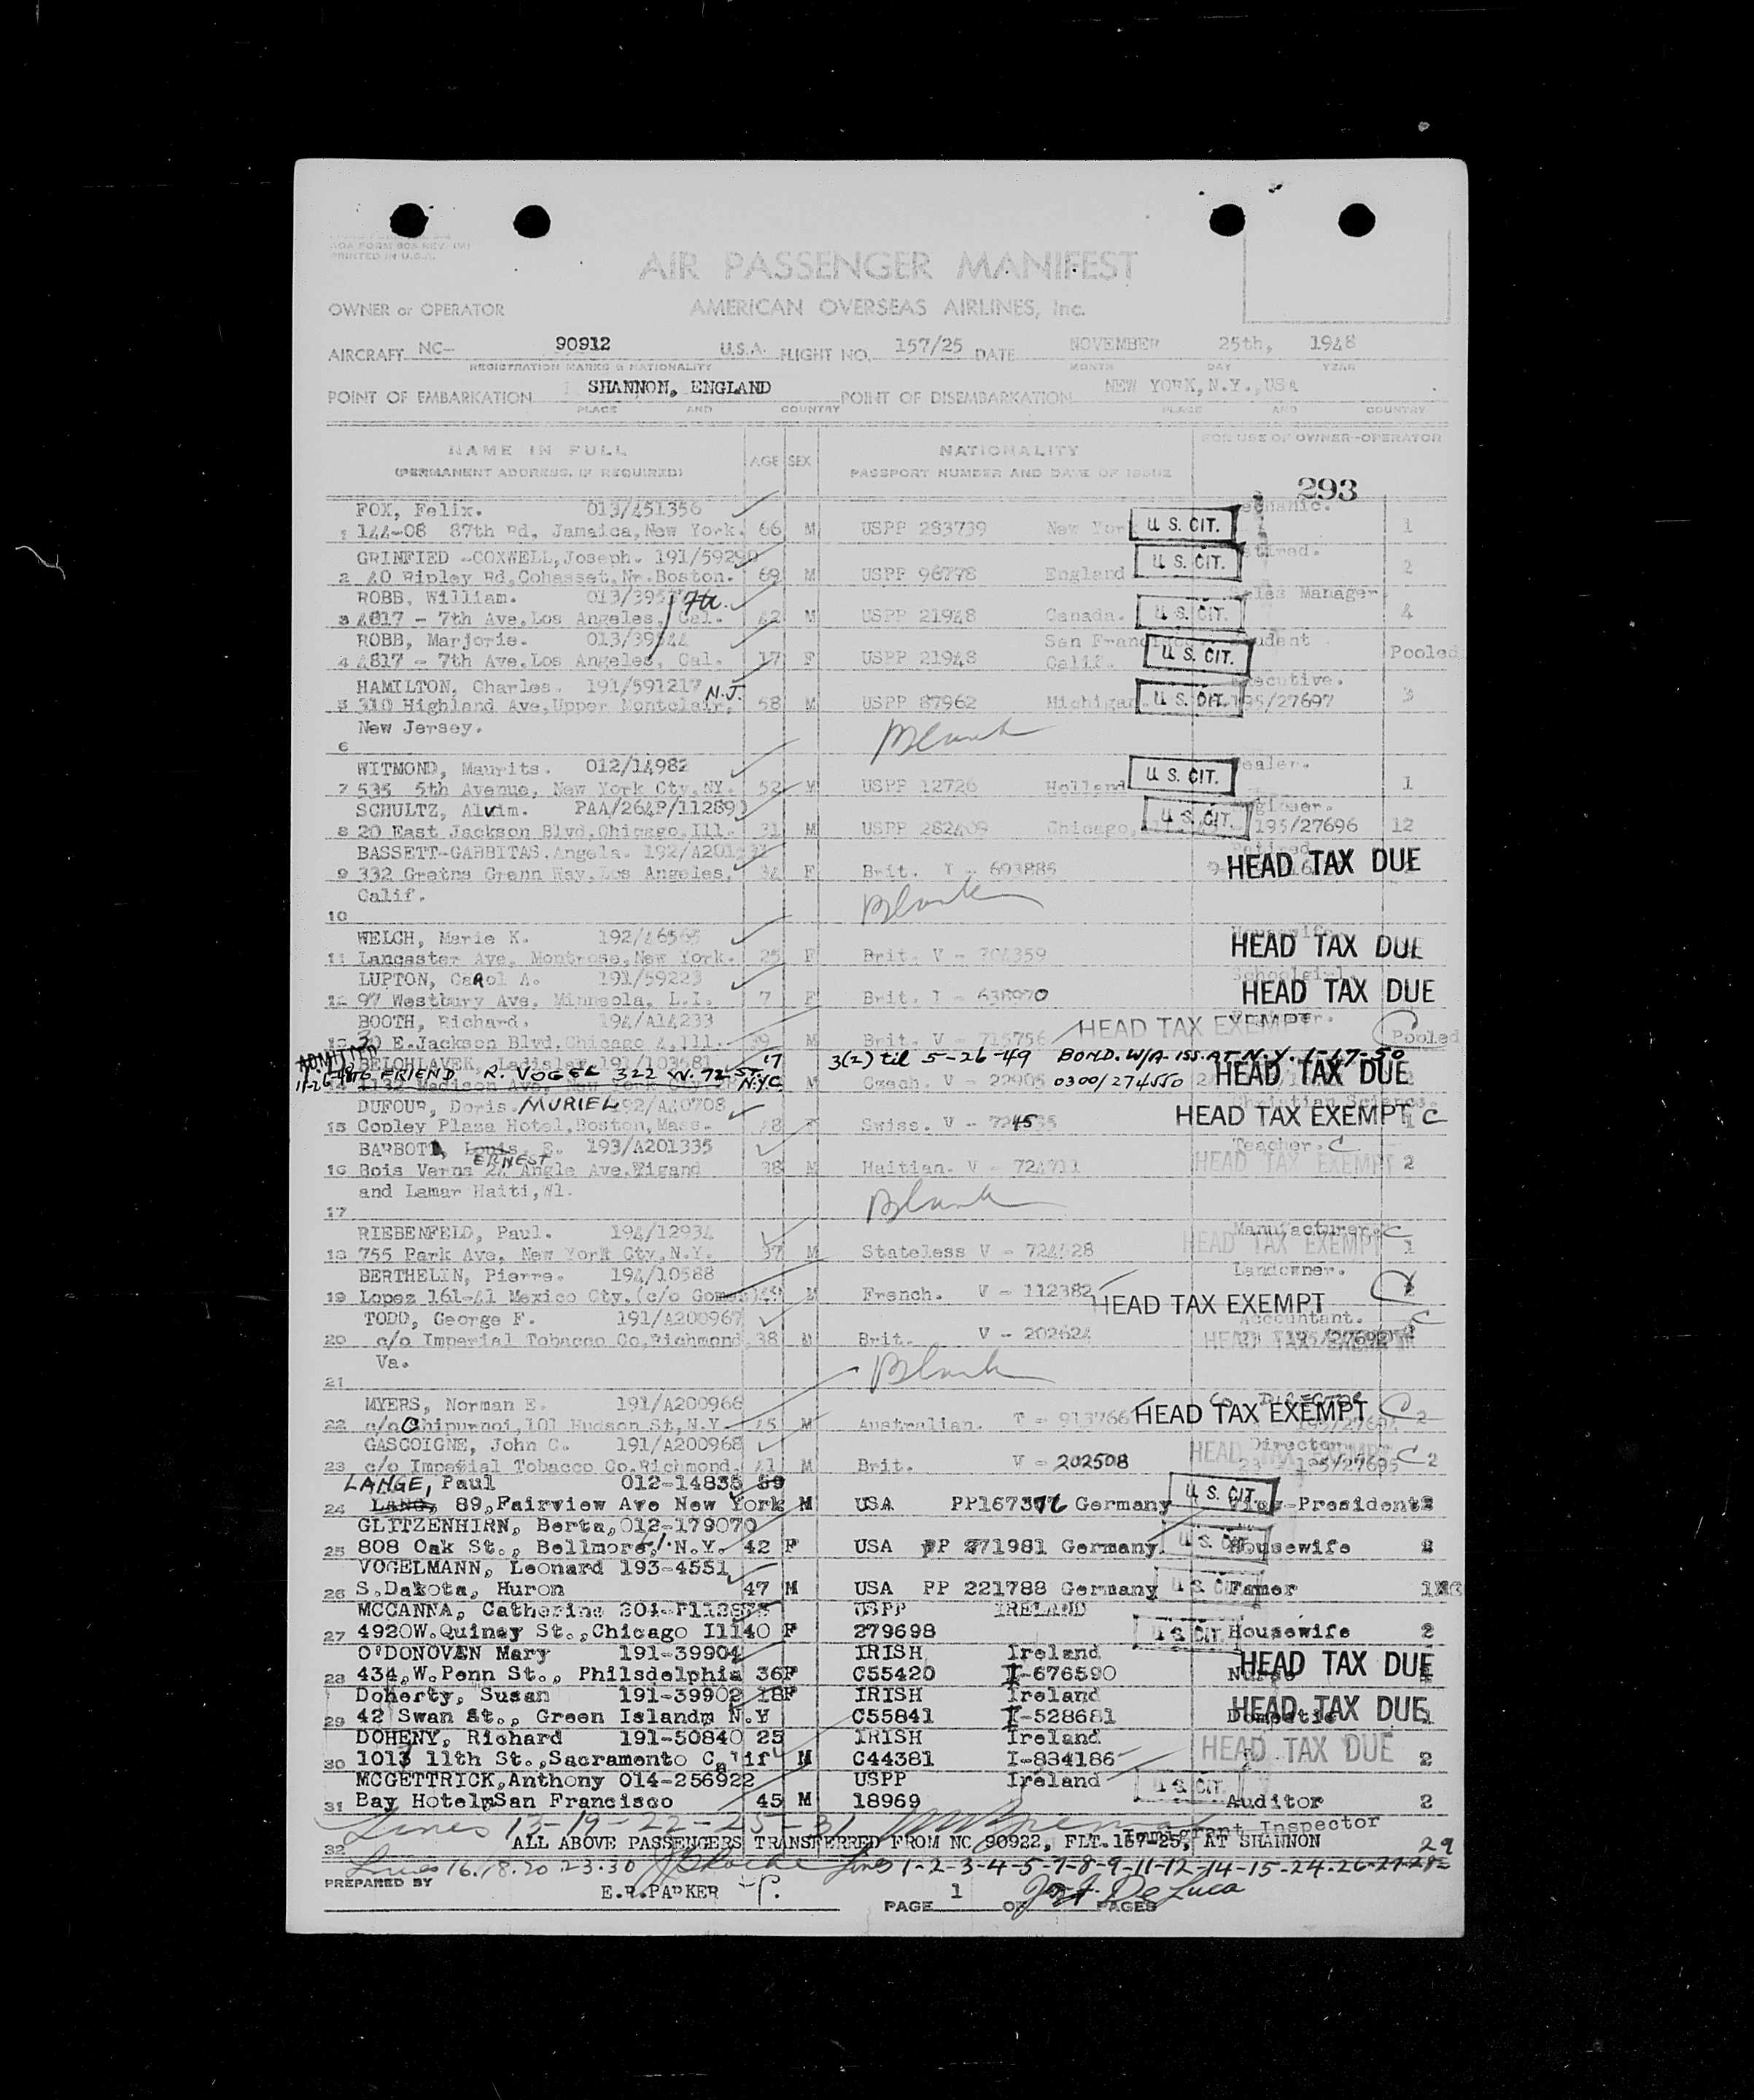 AOA FORM 808 REV.
PRINTED IN U.S.A.
AIR PASSENGER MANIFEST
OWNER or OPERATOR AMERICAN OVERSEAS AIRLINES, Inc.
AIRCRAFT NC- 90912 U.S.A. FLIGHT NO. 157/25 DATE NOVEMBER 25th, 1948
REGISTRATION MARKS & NATIONALITY MONTH DAY YEAR
POINT OF EMBARKATION SHANNON, ENGLAND POINT OF DISEMBARKATION NEW YORK,N.Y.,USA
PLACE AND COUNTRY PLACE AND COUNTRY
NAME IN FULL AGE SEX NATIONALITY FOR USE OF OWNER-OPERATOR
(PERMANENT ADDRESS, IF REQUIRED) PASSPORT NUMBER AND DATE OF ISSUE
293
FOX, Felix. 013/451356
1 144-08 87th Rd, Jamaica,New York. 66 M USPP 283739 U S. CIT. 1
GRINFIED -COXWELL,Joseph. 191/59290
2 40 Ripley Rd,Cohasset,Nr.Boston. 69 M USPP 96778 England U S. CIT. 2
ROBB, William. Sales Manager.
3 4817 - 7th Ave,Los Angeles, Cal. 42 M USPP 21948 Canada. U S. CIT. 4
ROBB, Marjorie. San Francisco
4 4817 - 7th Ave,Los Angeles, Cal. 17 F USPP 21948 Calif. U S. CIT. Pooled
HAMILTON, Charles. 191/591217 N.J.
5 310 Highland Ave,Upper Montclair, 58 M USPP 87962 Michigan U S. CIT. 195/27697 3
New Jersey. Blank
6
WITMOND, Maurits. 012/14982
7 535 5th Avenue, New York Cty,NY. 52 M USPP 12726 Holland U S. CIT. 1
SCHULTZ, Alvim.
8 20 East Jackson Blvd,Chicago,Ill. 31 M USPP 282409 Chicago, U S. CIT. 195/27696 12
BASSETT-GABBITAS,Angela. Retired
9 332 Gretna Grenn Way,Los Angeles, 34 F Brit. I - 693885 HEAD TAX DUE
Calif. Blank
10
WELCH, Marie K. Housewife.
11 Lancaster Ave, Montrose,New York. 25 F Brit. V - 704359 HEAD TAX DUE
LUPTON, CaRol A. 191/59223 Schoolgirl.
12 97 Westbury Ave. Minneola, L.I. 7 F Brit. I - 638970 HEAD TAX DUE
BOOTH, Richard. 194/A14233
13 E.Jackson Blvd,Chicago 4,Ill. 39 M Brit. V - 715756 HEAD TAX EXEMPT Pooled
ADMITTED BELOHLAVEK, Ladislav 191/103681 17 3(2) til 5-26-49 BOND. W/A ISS. AT N.Y. 1-17-50
TO FRIEND R. VOGEL 322 W. 72 ST. N.Y.C
14 1132 Madison Ave, New York M Czech. V - 22905 0300/274550 HEAD TAX DUE
DUFOUR, Doris. MURIEL Christian Science.
15 Copley Plaza Hotel,Boston,Mass. 48 F Swiss. HEAD TAX EXEMPT C
BARBOT, Louis, E. ERNEST 193/A201335 Teacher. C
16 Bois Verna 24 Angle Ave.Tigand 38 M Haitian. V - 724711 HEAD TAX EXEMPT 2
and Lamar Haiti,WI. Blank
17
RIEBENFELD, Paul. 194/12934 Manufacturer. C
18 755 Park Ave, New York Cty,N.Y. 37 M Stateless V - 724528 HEAD TAX EXEMPT 1
BERTHELIN, Pierre. 194/10588 Landowner.
19 Lopez 161-41 Mexico Cty,(c/o Gomez) M French. V - 112382 HEAD TAX EXEMPT
TODD, George F. 191/A200967 Accountant. C
20 c/o Imperial Tobacco Co,Richmond 38 M Brit. V - 202624 HEAD TAX EXEMPT
Va. Blank
21
MYERS, Norman E. 191/A200966 Co DIRECTOR
22 c/o Chipurnoi,101 Hudson St,N.Y. 45 M Australian. T - 913766 HEAD TAX EXEMPT C 2
GASCOIGNE, John C. 191/A200968 Director
23 c/o Imperial Tobacco Co.Richmond. 41 M Brit. V - 202508 HEAD TAX EXEMPT 195/27695 C 2
LANGE, Paul 012-14835 59
24 LANG, 89,Fairview Ave New York M USA PP167376 Germany U S. CIT. Vice-President 2
GLITZENHIRN, Berta,012-179070
25 808 Oak St., Bellmore, N.Y. 42 F USA PP 271981 Germany. U S. CIT. Housewife 2
VOGELMANN, Leonard 193-4551
26 S.Dakota, Huron 47 M USA PP 221788 Germany U S CIT Famer
MCCANNA, Catherine USPP IRELAND
27 4920W.Quincy St.,Chicago Ill 40 F 279698 U S CIT. Housewife 2
O'DONOVAN Mary 191-39904 IRISH Ireland
28 434,W.Penn St., Philsdelphia 36F C55420 I-676590 Nurse HEAD TAX DUE
Doherty, Susan 191-39902 18F IRISH Ireland
29 42 Swan St., Green Island, N.Y C55841 I-528681 Domestic HEAD TAX DUE 1
DOHENY, Richard 191-50840 25 IRISH Ireland
30 1013 11th St.,Sacramento Calif M C44381 I-834186 HEAD TAX DUE 2
MCGETTRICK,Anthony 014-256922 USPP Ireland
31 Bay Hotel,San Francisco 45 M 18969 U S CIT. Auditor 2
Lines 13-19-22-25-31 Immigrant Inspector
32 ALL ABOVE PASSENGERS TRANSFERRED FROM NC 90922, FLT.157-25, AT SHANNON 29
Lines 16.18.20 23.30 Lines 1-2-3-4-5-7-8-9-11-12-14-15-24-26-27-28
PREPARED BY E.R.PARKER PAGE 1 OF PAGES De Luca